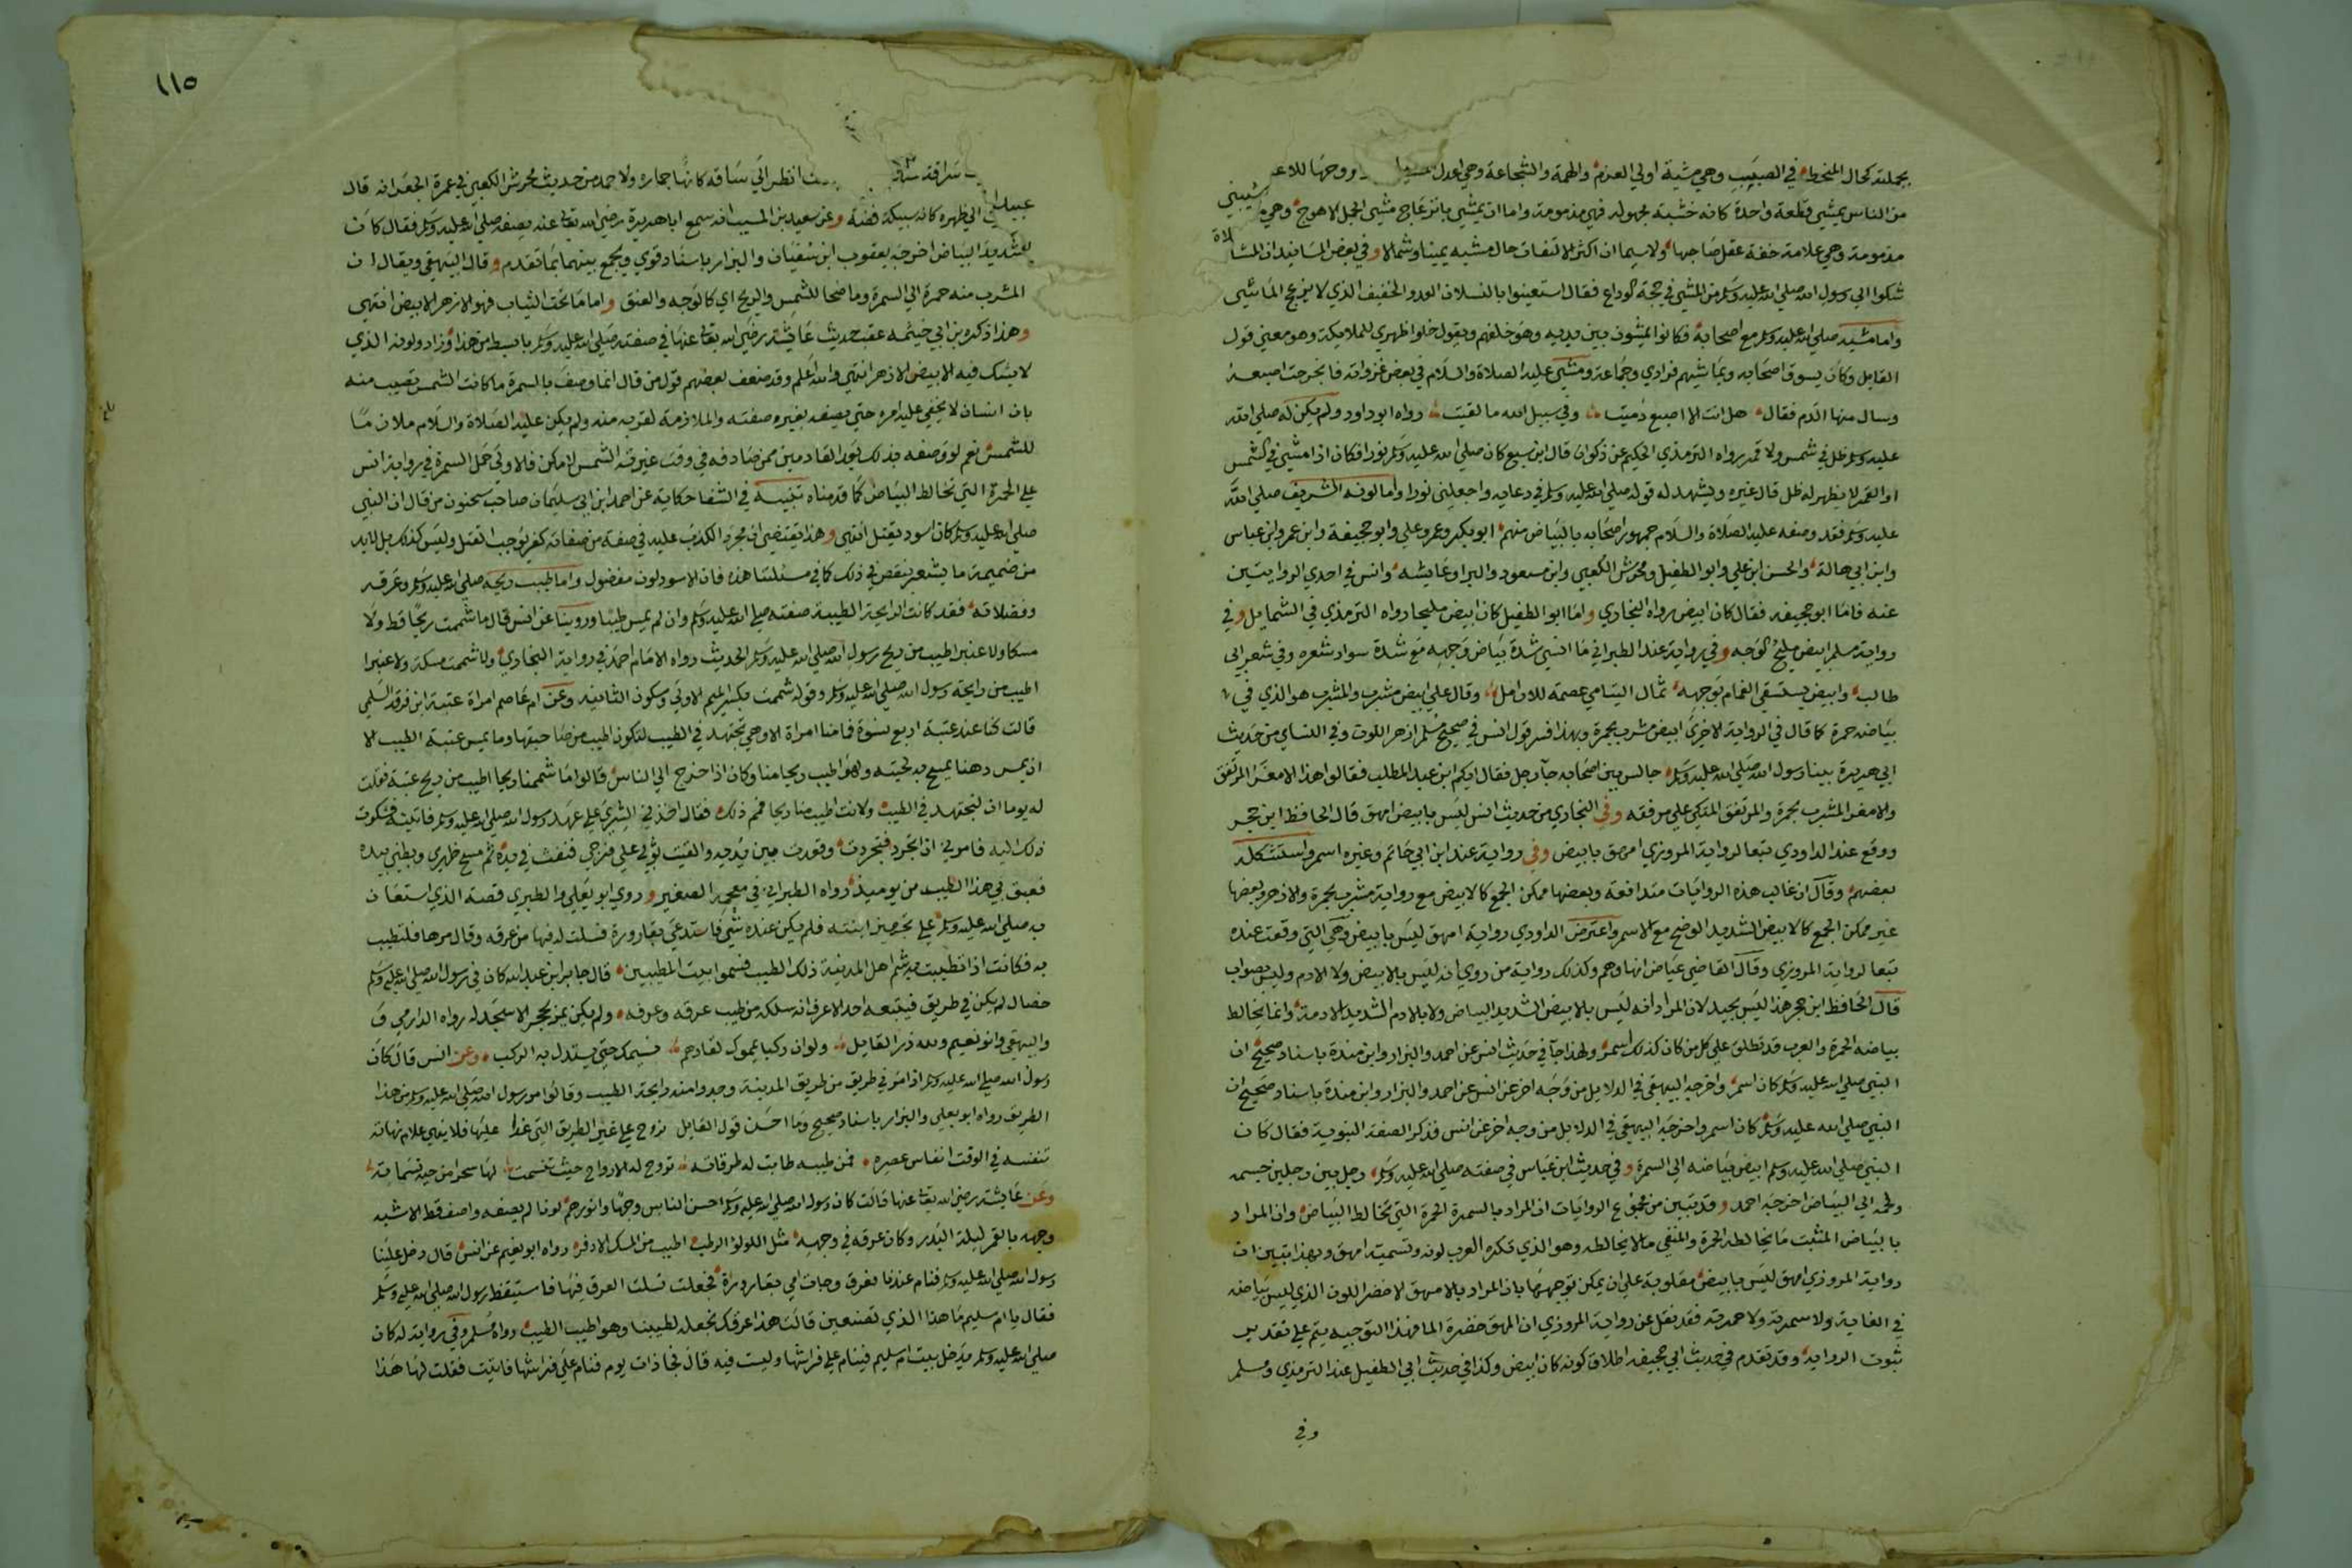 بجملته كحال المنحط في الصبب وهي مشية اولي العزم والهمة والشجاعة وهي اعدل وروحها للاعـ
من الناس يمشي قطعة واحدة كانه خشبة محمولة فهي مذمومة واما ان يمشي بانزعاج مشي الجمل الاهوج وهي مشيتي
مذمومة وهي علامة خفة عقل صاحبها ولاسيما ان اكثر الالتفات حال مشيه يمينا وشمالا وفي بعض المسانيد ان المشاة
شكوا الي رسول الله صلي الله عليه وسلم من المشي في حجة الوداع فقال استعينوا بالنسلان العدو الخفيف الذي لا يزعج الماشي
واما مشيه صلي الله عليه وسلم مع اصحابه فكانوا يمشون بين يديه وهو خلفهم ويقول خلوا ظهري للملايكة وهو معني قول
القايل وكان يسوق اصحابه ويماشيهم فرادي وجماعة ومشي عليه الصلاة والسلام في بعض غزواته فانجرحت اصبعه
وسال منها الدم فقال هل انت الا اصبع دميت وفي سبيل الله ما لقيت رواه ابو داود ولم يكن له صلي الله
عليه وسلم ظل في شمس ولا قمر رواه الترمذي الحكيم عن ذكوان قال ابن سبع كان صلي الله عليه وسلم نورا فكان اذا مشي في الشمس
او القمر لا يظهر له ظل قال غيره ويشهد له قوله صلي الله عليه وسلم في دعايه واجعلني نورا واما لونه الشريف صلي الله
عليه وسلم فقد وصفه عليه الصلاة والسلام جمهور اصحابه بالبياض منهم ابو بكر وعمر وعلي وابو جحيفة وابن عمر وابن عباس
وابن ابي هالة والحسن ابن علي وابو الطفيل ومحرش الكعبي وابن مسعود والبرا وعايشه وانس في احدي الروايتين
عنه فاما ابو جحيفه فقال كان ابيض رواه البخاري واما ابو الطفيل كان ابيض مليحا رواه الترمذي في الشمايل وفي
رواية مسلم ابيض مليح الوجه وفي رواية عند الطبراني ما انسي شدة بياض وجهه مع شدة سواد شعره وفي شعر ابي
طالب وابيض يستسقي الغمام بوجهه ثمال اليتامي عصمة للارامل وقال علي ابيض مشرب والمشرب هو الذي في
بياضه حمرة كما قال في الرواية الاخري ابيض مشرب بحمرة وبهذا فسر قول انس في صحيح مسلم ازهر اللون وفي النساي من حديث
ابي هريرة بينا رسول الله صلي الله عليه وسلم جالس بين اصحابه جا رجل فقال ايكم ابن عبد المطلب فقالوا هذا الامغر المرتفق
والامغر المشرب بحمرة والمرتفق المتكي علي مرفقه وفي البخاري من حديث انس ليس بابيض امهق قال الحافظ ابن حجر
ووقع عند الداودي تبعا لرواية المروزي امهق بابيض وفي رواية عند ابن ابي حاتم وغيره اسمر واستشكله
بعضهم وقال ان غالب هذه الروايات متدافعة وبعضها ممكن الجمع كالابيض مع رواية مشرب بحمرة والازهر وبعضها
غير ممكن الجمع كالابيض الشديد الوضح مع الاسمر واعترض الداودي رواية امهق ليس بابيض وهي التي وقعت عنده
تبعا لرواية المروزي وقال القاضي عياض انها وهم وكذلك رواية من روي انه ليس بالابيض ولا الادم وليس بصواب
قال الحافظ ابن حجر هذا ليس بجيد لان المراد انه ليس بالابيض الشديد البياض ولا بالادم الشديد الادمة وانما يخالط
بياضه الحمرة والعرب قد تطلق علي كل من كان كذلك اسمر ولهذا جا في حديث انس عن احمد والبزار وابن مندة باسناد صحيح ان
النبي صلي الله عليه وسلم كان اسمر واخرجه البيهقي في الدلايل من وجه اخر عن انس عن احمد والبزار وابن مندة باسناد صحيح ان
النبي صلي الله عليه وسلم كان اسمر واخرجه البيهقي في الدلايل من وجه اخر عن انس فذكر الصفة النبوية فقال كان
النبي صلي الله عليه وسلم ابيض بياضه الي السمرة وفي حديث ابن عباس في صفته صلي الله عليه وسلم رجل بين رجلين جسمه
ولحمه الي البياض اخرجه احمد وقد تبين من مجموع الروايات ان المراد بالسمرة الحمرة التي تخالط البياض وان المراد
بالبياض المثبت ما يخالطه الحمرة والمنفي ما لا يخالطه وهو الذي تكره العرب لونه وتسميه امهق وبهذا يتبين ان
رواية المروزي امهق ليس بابيض مقلوبة علي انه يمكن توجيهها بان المراد بالامهق الاخضر اللون الذي ليس بياضه
في الغاية ولا سمرته ولا حمرته فقد نقل عن رواية المروزي ان المهق خضرة الما فهذا التوجيه يتم علي تقدير
ثبوت الرواية وقد تقدم في حديث ابي جحيفه اطلاق كونه كان ابيض وكذا في حديث ابي الطفيل عند الترمذي ومسلم
وفي
١١٥
سراقة انظر الي ساقه كانها جماره ولاحمد من حديث محرش الكعبي في عمرة الجعرانه قال
الي ظهره كانه سبيكة فضة وعن سعيد بن المسيب انه سمع ابا هريرة رضي الله تعالي عنه يصفه صلي الله عليه وسلم فقال كان
شديد البياض اخرجه يعقوب ابن سفيان والبزار باسناد قوي ويجمع بينهما بما تقدم وقال البيهقي ويقال ان
المشرب منه حمرة الي السمرة وما ضحا للشمس والريح اي كالوجه والعنق واما ما تحت الثياب فهو الازهر الابيض انتهي
وهذا ذكره بن ابي خيثمه عقب حديث عايشة رضي الله تعالي عنها في صفته صلي الله عليه وسلم بابسط من هذا وزاد ولونه الذي
لا يشك فيه الابيض الازهر انتهي والله اعلم وقد ضعف بعضهم قول من قال انما وصف بالسمرة ما كانت الشمس تصيب منه
بان انسان لا يخفي عليه امره حتي يصفه بغيره صفته والملازمة لقربه منه ولم يكن عليه الصلاة والسلام ملازما
للشمس نعم لو وصفه بذلك بعد القادمين ممن صادفه في وقت غيرته الشمس لامكن فالاولي حمل السمرة في رواية انس
علي الحمرة التي تخالط البياض كما قدمناه تنبيه في الشفا حكاية عن احمد ابن ابي سليمان صاحب سحنون من قال ان النبي
صلي الله عليه وسلم كان اسود يقتل انتهي وهذا يقتضي ان مجرد الكذب عليه في صفة من صفاته كفر يوجب القتل وليس كذلك بل لابد
من ضميمة ما يشعر بنقص في ذلك كما في مسئلتنا هذه فان الاسود لون مفضول واما طيب ريحه صلي الله عليه وسلم وعرقه
وفضلاته فقد كانت الرايحة الطيبة صفته صلي الله عليه وسلم وان لم يمس طيبا وروينا عن انس قال ما شممت ريحا قط ولا
مسكا ولا عنبرا اطيب من ريح رسول الله صلي الله عليه وسلم الحديث رواه الامام احمد في رواية البخاري ولا شممت مسكة ولا عنبرا
اطيب من رايحة رسول الله صلي الله عليه وسلم وقوله شممت بكسر الميم الاولي وسكون الثانيه وعن ام عاصم امراة عتبة ابن فرقد السلمي
قالت كنا عند عتبة اربع نسوة فما منا امراة الا وهي تجتهد في الطيب لتكون اطيب من صاحبتها وما يمس عتبة الطيب الا
ان يمس دهنا يمسح به لحيته ولهو اطيب ريحا منا وكان اذا خرج الي الناس قالوا ما شممنا ريحا اطيب من ريح عتبة فقلت
له يوما انا لنجتهد في الطيب ولانت اطيب منا ريحا فمم ذلك فقال اخذني الشري علي عهد رسول الله صلي الله عليه وسلم فاتيته فشكوت
ذلك اليه فامرني ان اتجرد فتجردت وقعدت بين يديه والقيت ثوبي علي فرجي فنفث في يده ثم مسح ظهري وبطني بيده
فعبق بي هذا الطيب من يوميذ رواه الطبراني في معجمه الصغير وروي ابو يعلي والطبري قصة الذي استعان
به صلي الله عليه وسلم علي تجهيز ابنته فلم يكن عنده شي فاستدعي بقارورة فسلت له فيها من عرقه وقال مرها فلتطيب
به فكانت اذا تطيبت به شم اهل المدينة ذلك الطيب فسموا بيت المطيبين قال جابر ابن عبد الله كان في رسول الله صلي الله عليه وسلم
خصال لم يكن في طريق فيتبعه احد الا عرف انه سلكه من طيب عرقه وعرفه ولم يكن يمر بحجر الا سجد له رواه الدارمي و
والبيهقي وابو نعيم ولله در القايل ولو ان ركبا يمموك لقادهم نسيمك حتي يستدل به الركب وعن انس قال كان
رسول الله صلي الله عليه وسلم اذا مر في طريق من طريق المدينة وجدوا منه رايحة الطيب وقالوا مر رسول الله صلي الله عليه وسلم من هذا
الطريق رواه ابو يعلي والبزار باسناد صحيح وما احسن قول القايل يروح علي غير الطريق التي غدا عليها فلا ينهي علاه نهاته
تنفسه في الوقت انفاس عصره فمن طيبه طابت له طرقاته تروح له الارواح حيث تنسمت لها سحرا من حيه نسماته
وعن عايشة رضي الله تعالي عنها قالت كان رسول الله صلي الله عليه وسلم احسن الناس وجها وانورهم لونا لم يصفه واصف قط الا شبه
وجهه بالقمر ليلة البدر وكان عرقه في وجهه مثل اللولو الرطب اطيب من المسك الاذفر رواه ابو نعيم عن انس قال دخل علينا
رسول الله صلي الله عليه وسلم فنام عندنا فعرق وجات امي بقارورة فجعلت تسلت العرق فيها فاستيقظ رسول الله صلي الله عليه وسلم
فقال يا ام سليم ما هذا الذي تصنعين قالت هذا عرقك نجعله لطيبنا وهو اطيب الطيب رواه مسلم وفي رواية له كان
صلي الله عليه وسلم يدخل بيت ام سليم فينام علي فراشها وليست فيه قال فجا ذات يوم فنام علي فراشها فاتيت فقلت لها هذا